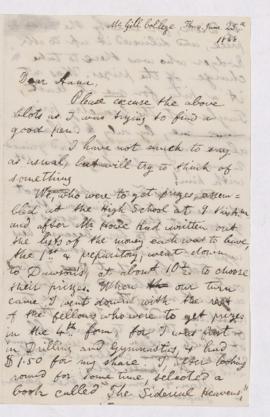 McGill College, Thurs. June 25th
Dear Anna.
Please excuse the above
blots as I was trying to find a
good pen.
I have not much to say
as usual, but will try to think of
something
We, who were to get prizes, assem-
bled at the High School at 9
and after Mr had written out
the lists of the money each was to have,
the 1st & preparitory, went down
to Dawson's, at about 10½ to choose
their prizes. When our turn
came I went down with the rest
of the fellows who were to get prizes
in the 4th form, for I was
in Drilling and Gymnastics, & had
$1.50 for my share. I after looking
round for some time, selected a
book called "The Siderial Heavens,"